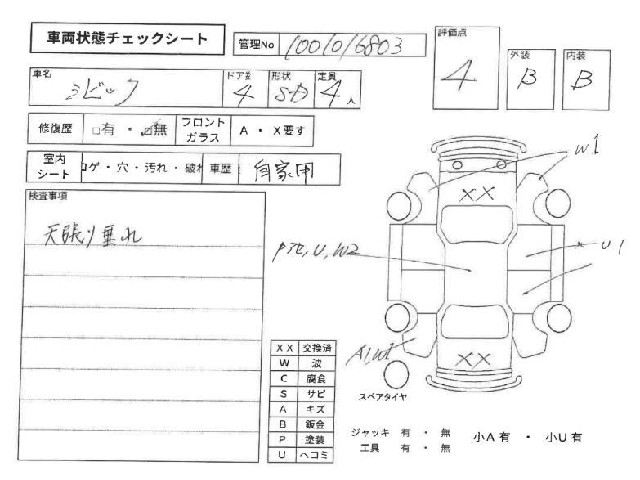 車両状態チェックシート 管理No 1001016803
評価点 4 外装 B 内装 B
車名 シビック ドア数 4 形状 SD 定員 4人
修復歴 □有・☑無 フロントガラス A・X要す
室内シート コゲ・穴・汚れ・破れ 車歴 自家用
検査事項
天張り垂れ
W1
XX
U1
U, W2
A1W1
XX
スペアタイヤ
XX 交換済
W 波
C 腐食
S サビ
A キズ
B 鈑金
P 塗装
U ヘコミ
ジャッキ 有・無
工具 有・無
小A有・小U有